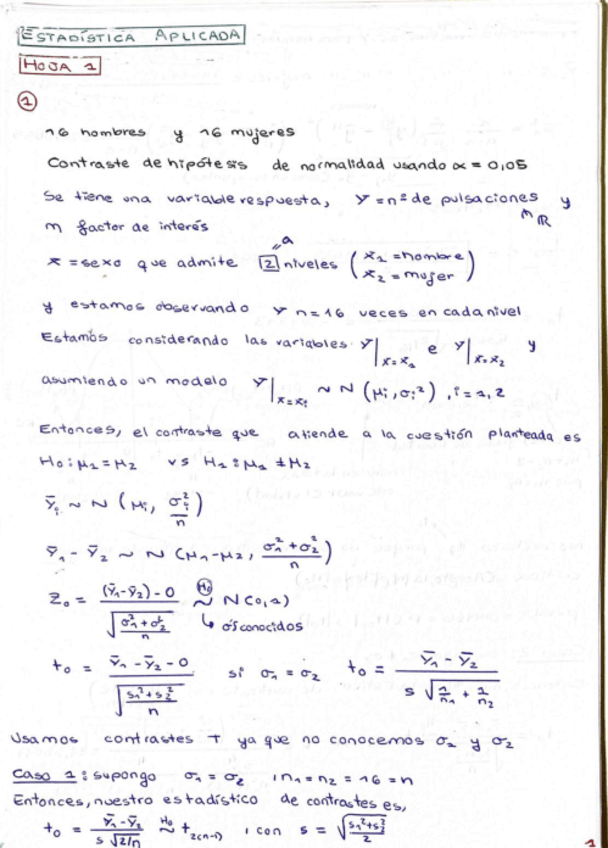 ESTADÍSTICA APLICADA
HOJA 1
①
16 hombres y 16 mujeres
Contraste de hipótesis de normalidad usando α = 0,05
Se tiene una variable respuesta, Y = nº de pulsaciones y
m factor de interés ∈ ℝ
x = sexo que admite 2 niveles (x₁ = hombre
a
x₂ = mujer)
y estamos observando Y n=16 veces en cada nivel
Estamos considerando las variables Y|x=x₁ e Y|x=x₂ y
asumiendo un modelo Y|x=xᵢ ~ N(μᵢ, σᵢ²), i = 1,2
Entonces, el contraste que atiende a la cuestión planteada es
H₀: μ₁ = μ₂ vs H₁: μ₁ ≠ μ₂
Ȳᵢ ~ N(μᵢ, σᵢ²/n)
Ȳ₁ - Ȳ₂ ~ N(μ₁-μ₂, (σ₁²+σ₂²)/n)
Z₀ = ((Ȳ₁-Ȳ₂) - 0)/√((σ₁²+σ₂²)/n) ~ (H₀) N(0,1)
↳ σ's conocidos
t₀ = (Ȳ₁ - Ȳ₂ - 0)/√((s₁²+s₂²)/n) si σ₁ = σ₂ t₀ = (Ȳ₁ - Ȳ₂)/(s √(1/n₁ + 1/n₂))
Usamos contrastes T ya que no conocemos σ₁ y σ₂
Caso 1: supongo σ₁ = σ₂ , n₁ = n₂ = 16 = n
Entonces, nuestro estadístico de contrastes es,
t₀ = (Ȳ₁-Ȳ₂)/(s √(2/n)) ~ H₀ t₂₍ₙ₋₁₎ , con s = √((s₁²+s₂²)/2)
1